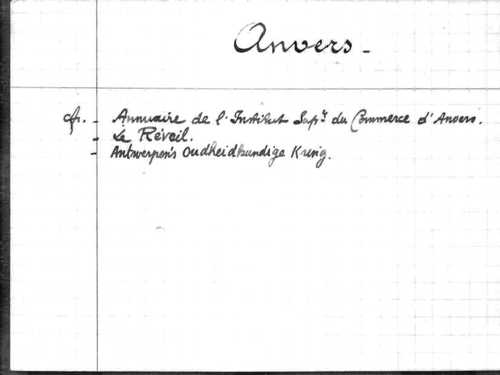 Anvers -
cfr. - Annuaire de l'Institut Supr du Commerce d'Anvers.
- Le Réveil.
- Antwerpen's Oudheidkundige Kring.